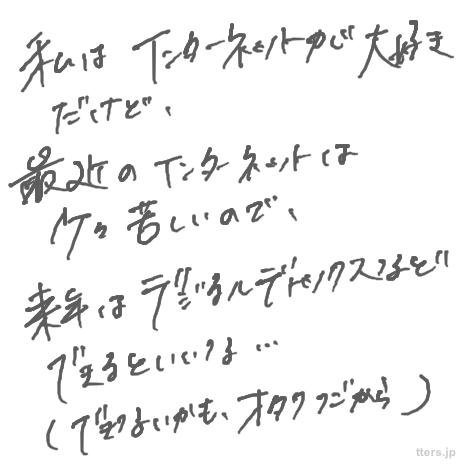 私は インターネットが大好き
だけど、
最近のインターネットは
々苦しいので、
来年はデジタルデトックスなど
できるといいな…
(できないかも、オタクだから)
tters.jp